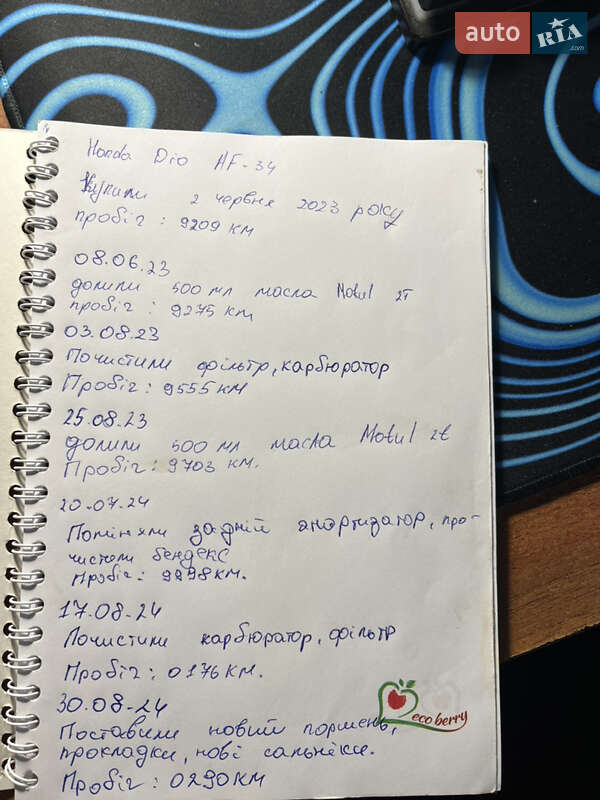 auto RIA.com
Honda Dio AF-34
Купили 2 червня 2023 року
пробіг : 9209 км
08.06.23
долили 500 мл масла Motul 2T
пробіг : 9275 км
03.08.23
Почистили фільтр, карбюратор
Пробіг : 9555 км
25.08.23
долили 500 мл масла Motul 2t
Пробіг : 9703 км.
20.07.24
Поміняли задній амортизатор, про-
чистили бендекс
Пробіг : 9898 км.
17.08.24
Почистили карбюратор, фільтр
Пробіг : 0176 км.
30.08.24
ecoberry
Поставили новий поршень,
прокладки, нові сальніки.
Пробіг : 0290 км